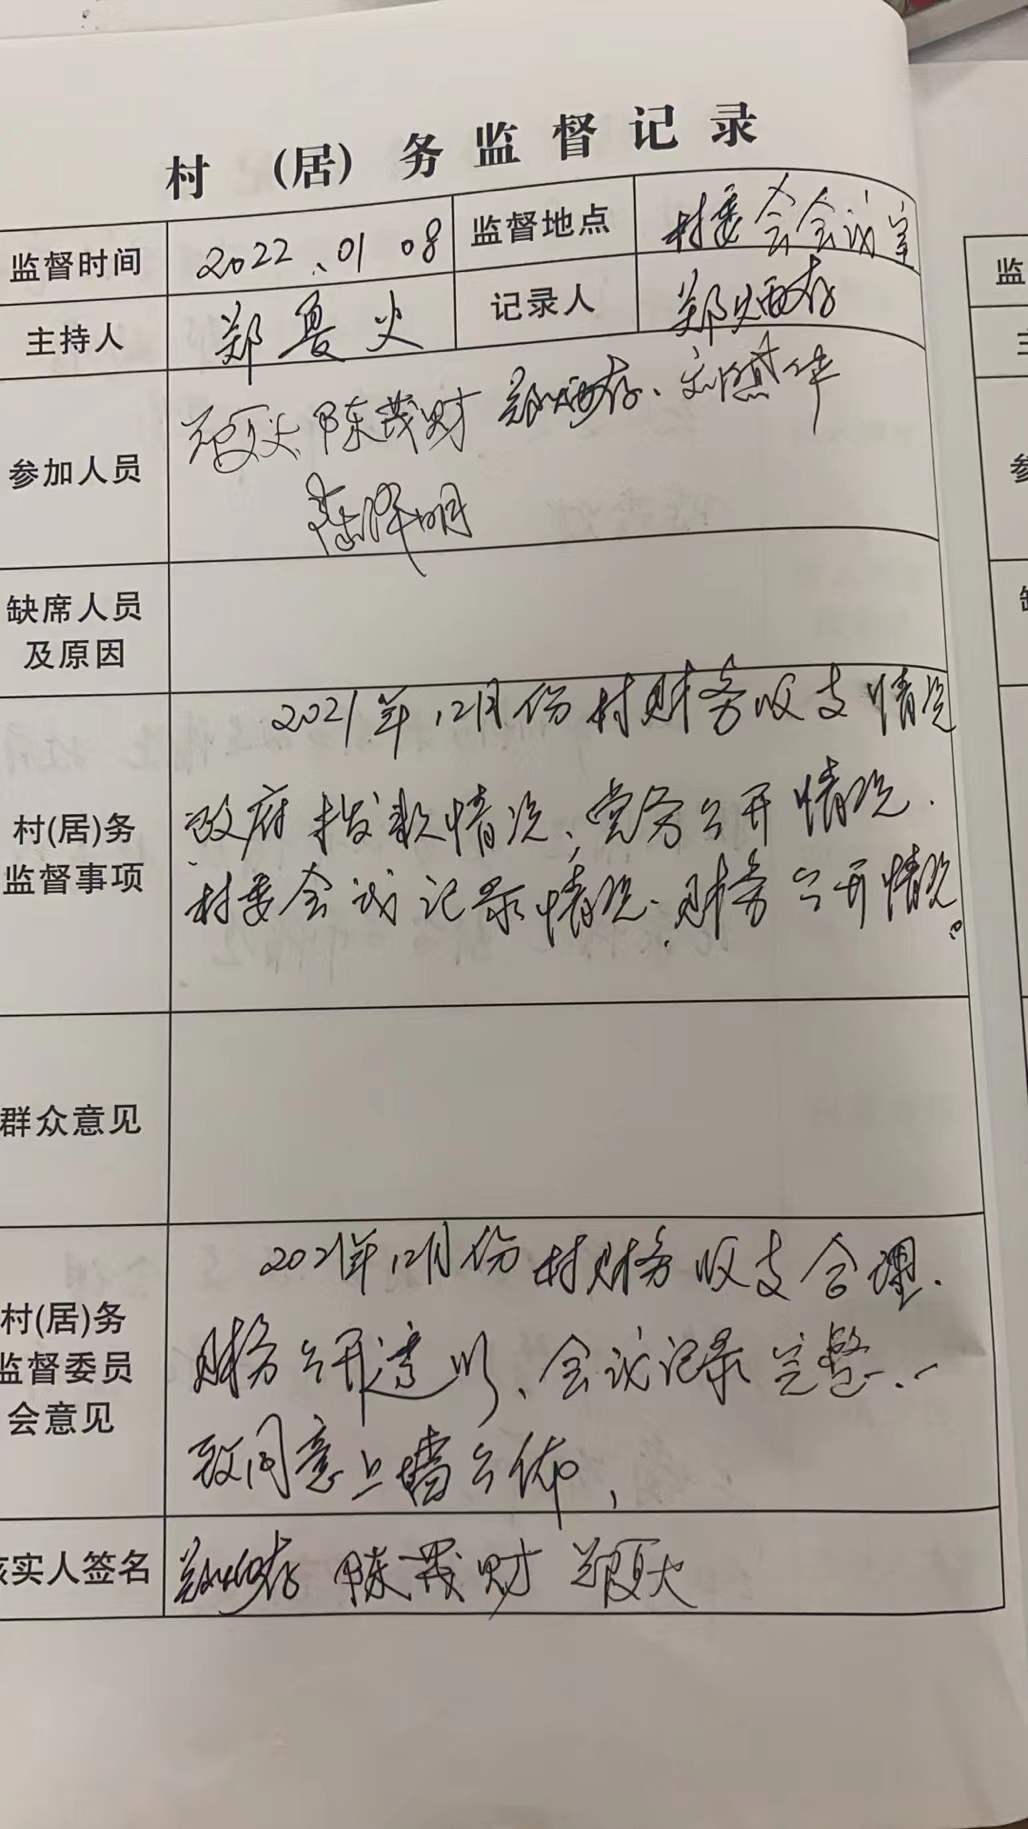 村（居）务监督记录
监督时间 2022.01 08 监督地点 村委会会议室
主持人 郑夏火 记录人 郑炳存
参加人员 郑夏火 陈茂财 郑炳存、刘燕华
陈泽明
缺席人员
及原因
2021年12月份村财务收支情况
村(居)务
监督事项
政府拨款情况、党务公开情况.
村委会议记录情况.财务公开情况。
群众意见
2021年12月份村财务收支合理.
村(居)务
监督委员
会意见
财务公开透明、会议记录完整.一
致同意上墙公佈,
核实人签名 郑炳存 陈茂财 郑夏火
监